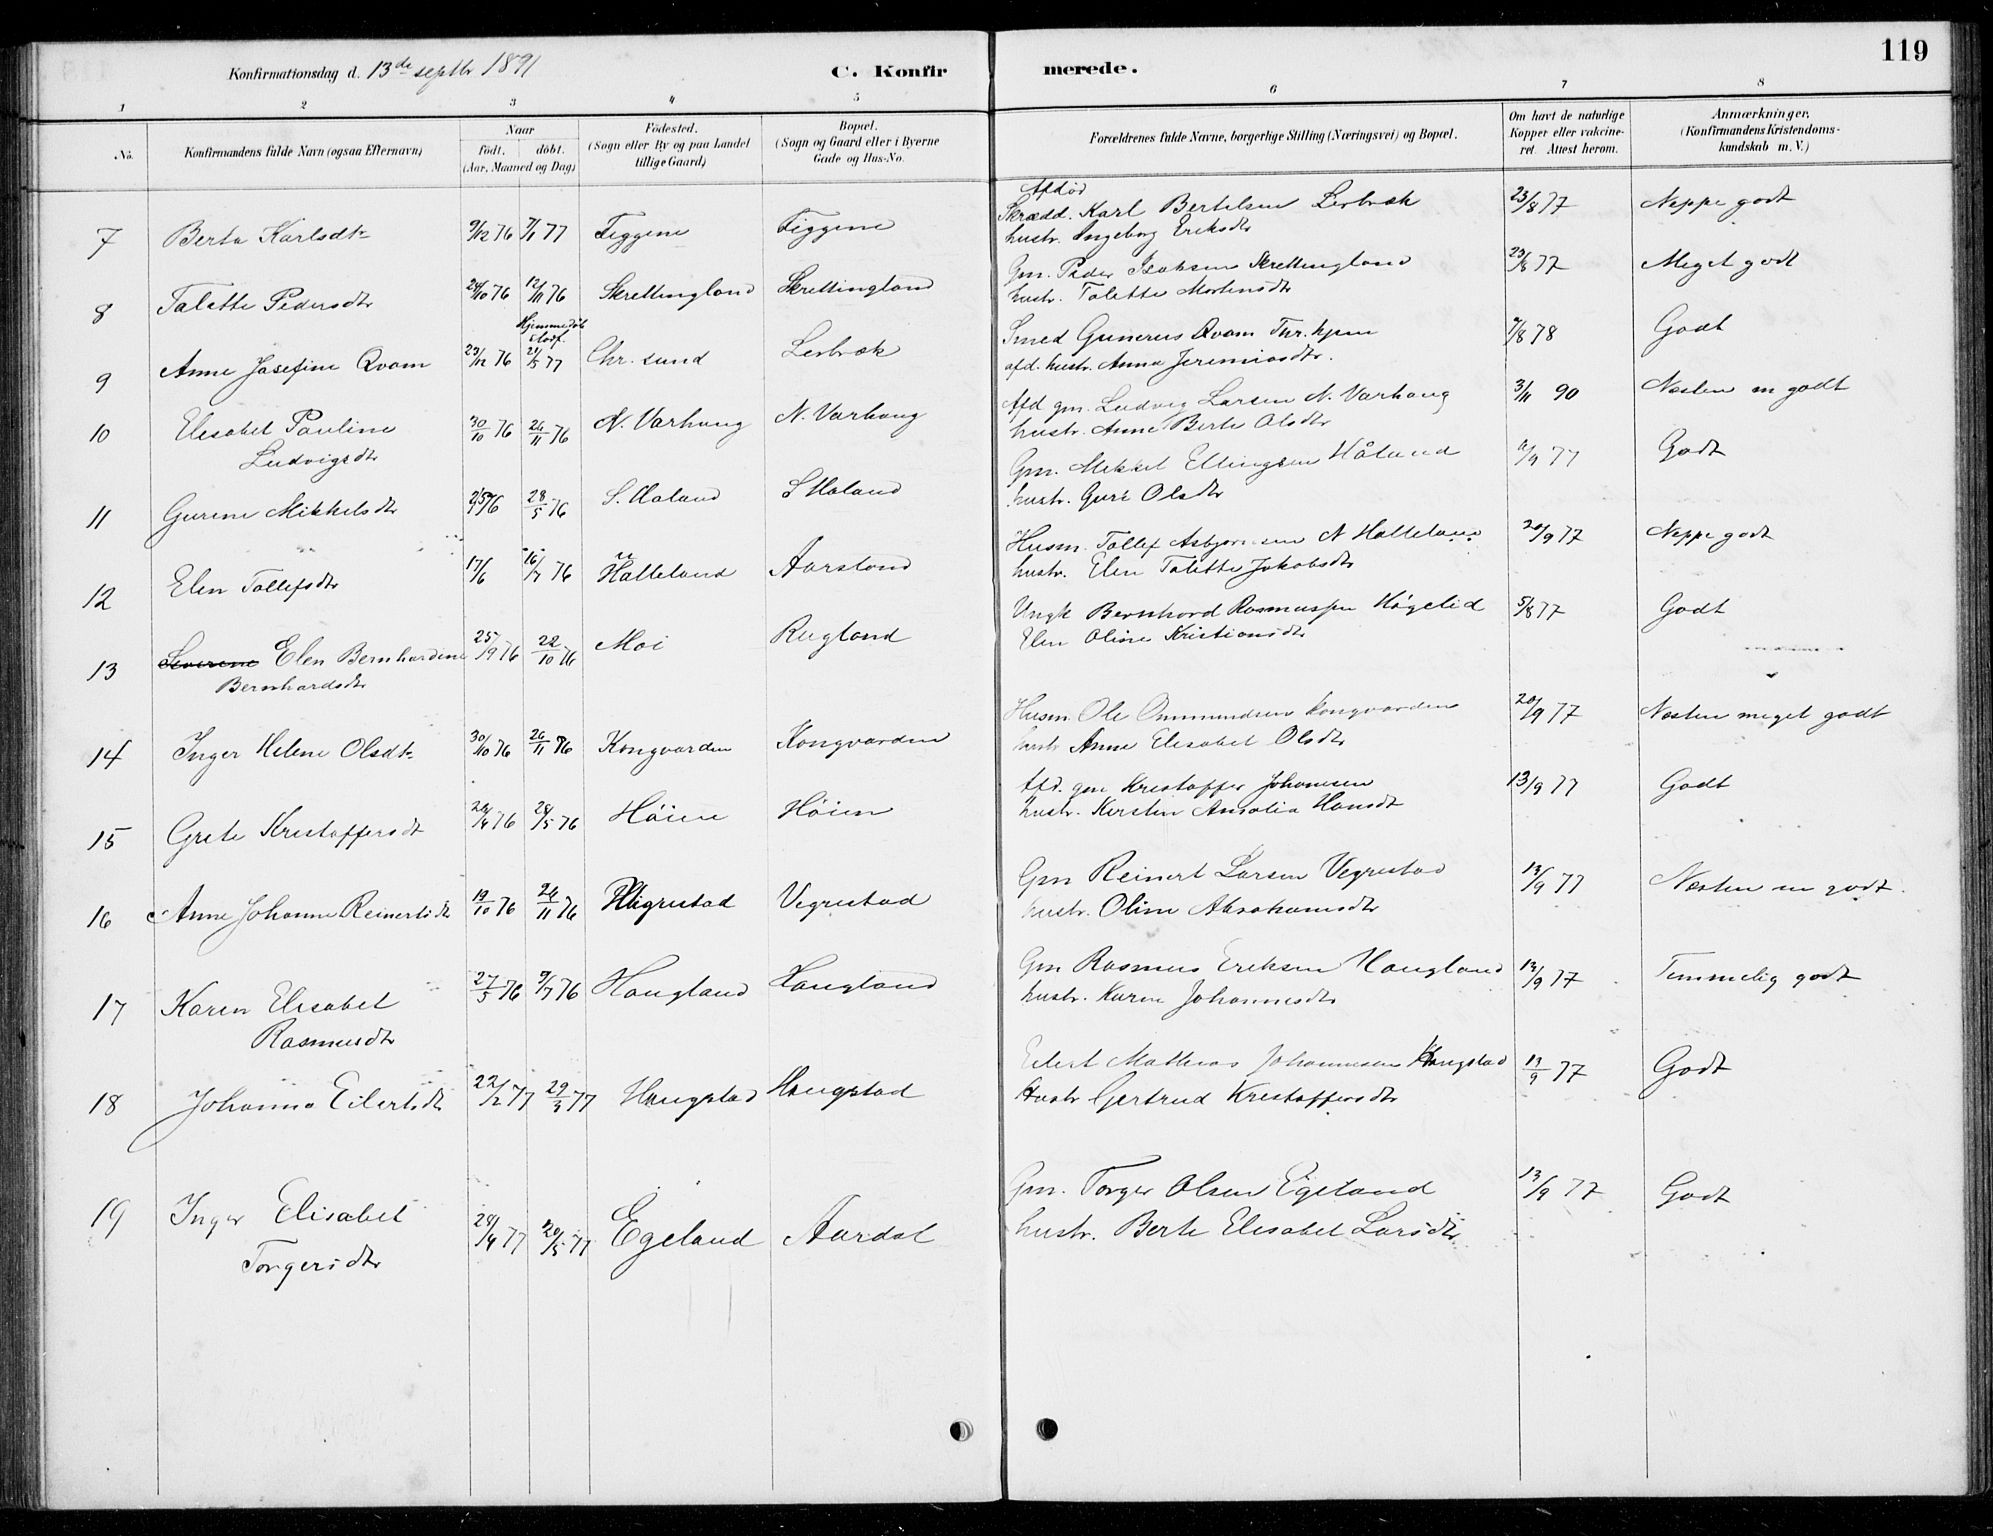 119
Konfirmationsdag d. 13de septbr 1891
C. Konfirmerede.
1 2 3 4 5 6 7 8
No.
Konfirmandens fulde Navn (ogsaa Efternavn)
Naar
født. døbt.
(Aar, Maaned og Dag)
Födested.
(Sogn eller By og paa Landet
tillige Gaard)
Bopæl.
(Sogn og Gaard eller i Byerne
Gade og Hus-No.
Forældrenes fulde Navne, borgerlige Stilling (Næringsvei) og Bopæl.
Om havt de naturlige
Kopper eller vakcine-
ret. Attest herom.
Anmærkninger.
(Konfirmandens Kristendoms-
kundskab m. V.)
Afdød
7 Berta Karlsdtr 9/12 76 7/1 77 Tiggene Tiggene Skrædd. Karl Bertelsen Lerbræk 23/8 77 Neppe godt
hustr. Ingeborg Eriksdtr
8 Talette Pedersdtr 24/10 76 12/11 76 Skrettingland Skrettingland Gm. Peder Isaksen Skrettingland 23/8 77 Meget godt
hustr. Talette Mortensdtr
Hjemmedøbt
9 Anne Josefine Qvam 29/12 76 21/5 77 Chr. sund Lerbræk Smed Gunerus Qvam 7/8 78 Godt
afd. hustr. Anna Jeremiasdtr.
10 Elisabet Pauline 30/10 76 26/11 76 N. Varhaug N. Varhaug Afd gm. Ludvig Larsen N. Varhaug 3/11 90 Næsten m godt
Ludvigsdtr
hustr. Anne Berte Olsdtr
11 Gurine Mikkelsdtr 28/5 76 S. Haland S Haland Gm. Mikkel Ellingsen Håland 11/9 77 Godt
hustr. Guri Olsdtr
12 Elen Tollefsdtr 17/6 16/7 76 Hålleland Aarstand Husm. Tollef Asbjørnsen N Halleland 20/9 77 Neppe godt
hustr. Elen Talette Jakobsdtr
13 Severene Elen Bernhardine 25/9 76 22/10 76 Moi Rugland Ungk Bernhard Rasmussen Høgelid 5/8 77 Godt
Bernhardsdtr
Elen Oline Kristiansdtr
14 Inger Helene Olsdtr 30/10 76 26/11 76 Kongvarden Kongvarden Husm. Ole Ommundsen Kongvarden 20/9 77 Næsten meget godt
hustr Anne Elisabet Olsdtr
15 Grete Kristoffersdt 24/4 76 28/5 76 Høien Høien Afd. gm Kristoffer Johanesen 13/9 77 Godt
hustr. Kirsten Amalia Hansdt
16 Anne Johanne Reinertsdtr 19/10 76 26/11 76 Vigrestad Vegrestad Gm Reinert Larsen Vegrestad 13/9 77 Næsten m godt.
hustr. Oline Abrahamsdtr
17 Karen Elisabet 27/5 76 9/7 76 Haugland Haugland Gm Rasmus Eriksen Haugland 13/9 77 Temmelig godt
Rasmusdtr
hustr. Karen Johannesdtr
18 Johanna Eilertsdtr 22/2 77 29/3 77 Haugstad Haugstad Eilert Mathias Johannesen Haugstad 13/9 77 Godt
Hustr Gertrud Kristoffersdtr
19 Inger Elisabet 28/4 77 20/5 77 Egeland Aardal Gm. Torger Olsen Egeland 13/9 77 Godt
Torgersdtr
hustr. Berte Elisabet Larsdtr